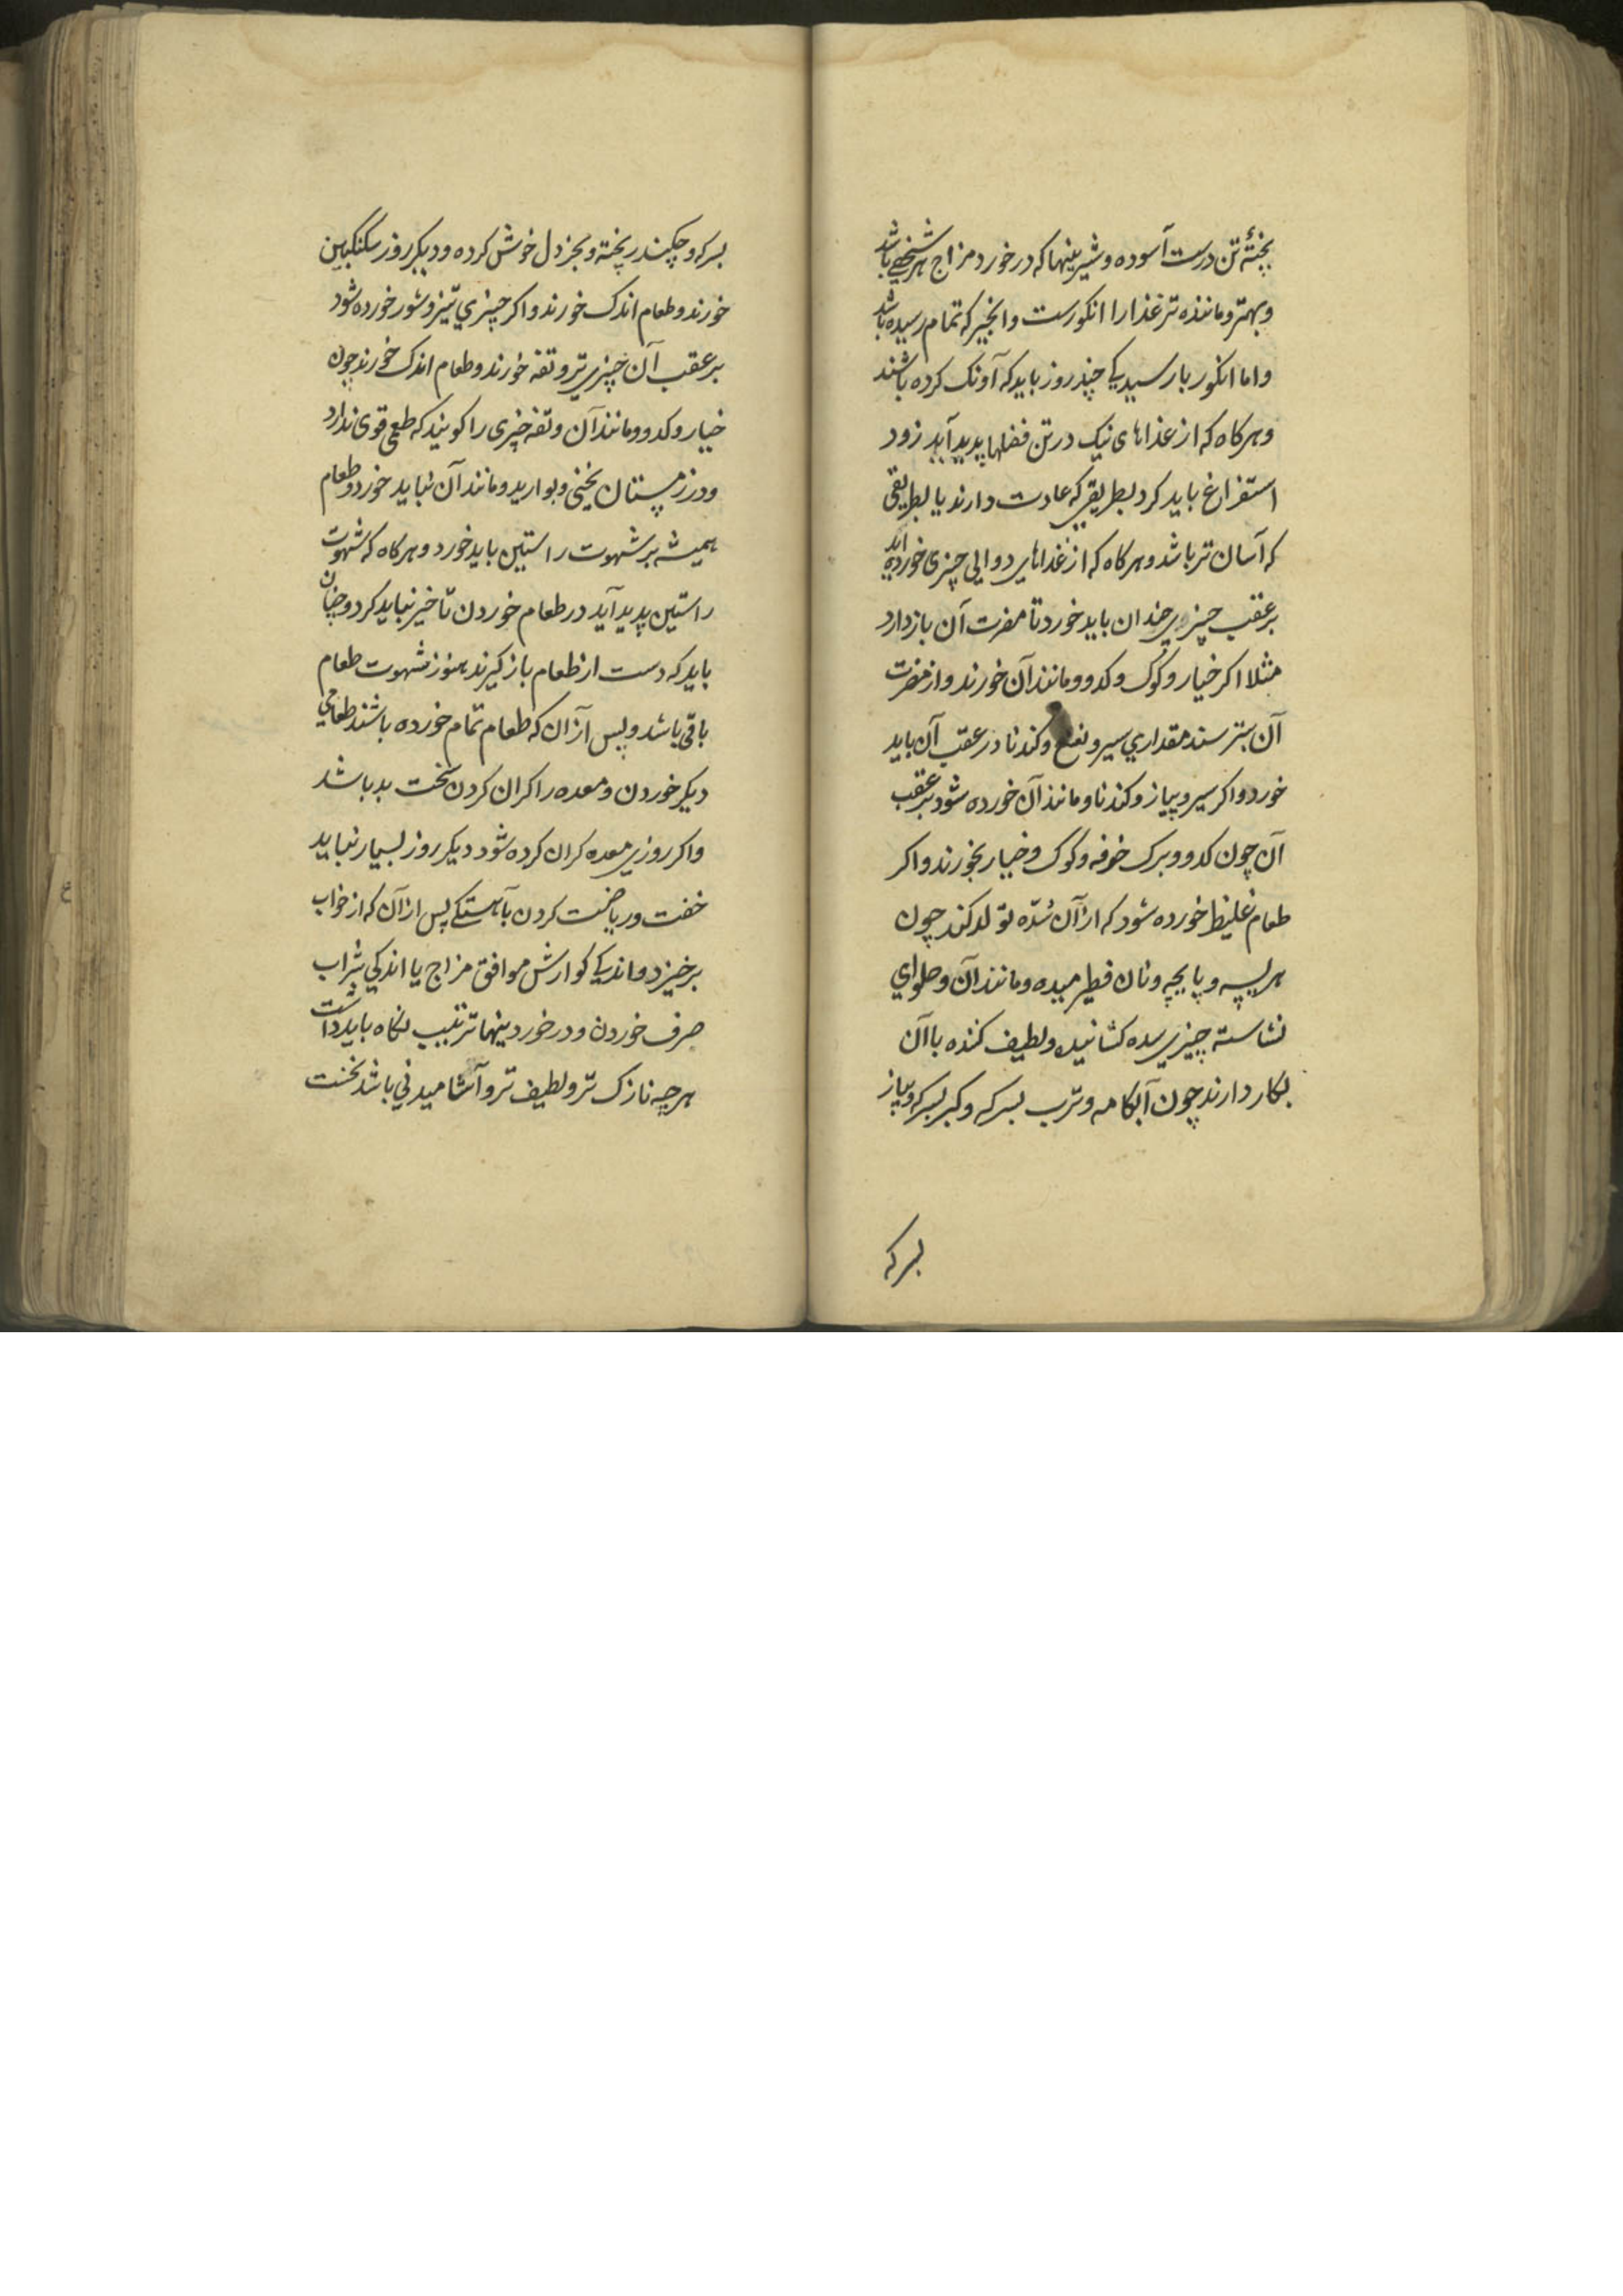 پختهٔ تن درست آسوده و شیرینیها که درخورد مزاج هر شخصی باشد
و بهتر و مانندهتر غذا را انکورست و انجیر که تمام رسیده باشد
و اما انکور بارسیدکی چند روز باید که آونک کرده باشند
و هرکاه که از غذاهای نیک در تن فضلها پدید آید زود
استفراغ باید کرد بطریقی که عادت دارند یا بطریقی
که آسان تر باشد و هرکاه که از غذاهای دوایی چیزی خورده اید
بر عقب چیزی چندان باید خورد تا مضرت آن بازدارد
مثلا اکر خیار و کوک و کدو و مانند آن خورند و از مضرت
آن بترسند مقداری سیر و نعنع و کندنا در عقب آن باید
خورد و اکر سیر و پیاز و کندنا و مانند آن خورده شود بر عقب
آن چون کدو و برک خرفه و کوک و خیار بخورند و اکر
طعام غلیظ خورده شود که از آن سُدّه تولد کند چون
هریسه و پایچه و نان فطیر میده و مانند آن و حلوای
نشاسته چیزی سده کشاننده و لطیف کننده با آن
بکار دارند چون آبکامه و ترب بسرکه و کبر بسرکه و پیاز
بسرکه
بسرکه و چکندر پخته و بخردل خوش کرده و دیکر روز سکنکبین
خورند و طعام اندک خورند و اکر چیزی تیز و شور خورده شود
بر عقب آن چیزی تر و تفه خورند و طعام اندک خورند چون
خیار و کدو و مانند آن و تفه چیزی را کویند که طعمی قوی ندارد
و در زمستان یخنی و بوارید و مانند آن نباید خورد و طعام
همیشه بر شهوت راستین باید خورد و هرکاه که شهوت
راستین پدید آید در طعام خوردن تأخیر نباید کرد و چنان
باید که دست از طعام باز کیرند هنوز شهوت طعام
باقی باشد و پس از آن که طعام تمام خورده باشند طعامی
دیکر خوردن و معده را کران کردن سخت بد باشد
و اکر روزی معده کران کرده شود دیکر روز بسیار نباید
خفت و ریاضت کردن بآهستکی پس از آن که از خواب
برخیزد و اندکی کوارش موافق مزاج یا اندکی شراب
صرف خوردن و در خوردینها ترتیب نکاه باید داشت
هرچه نازک تر و لطیف تر و آشامیدنی باشد نخست